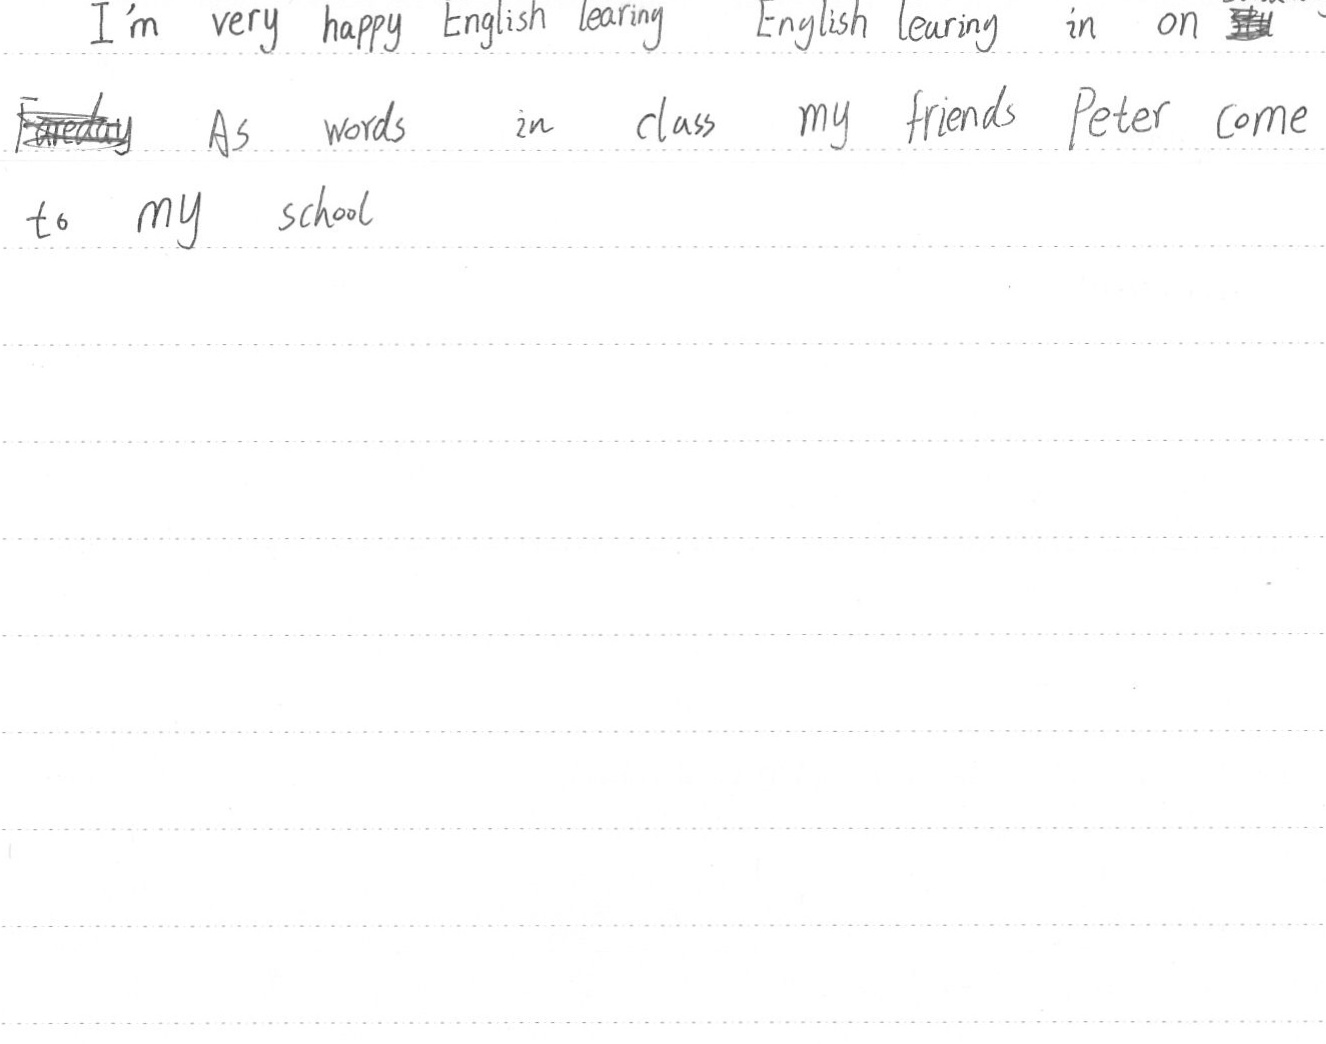 I'm very happy English learing English learing in on
As words in class my friends Peter come
to my school